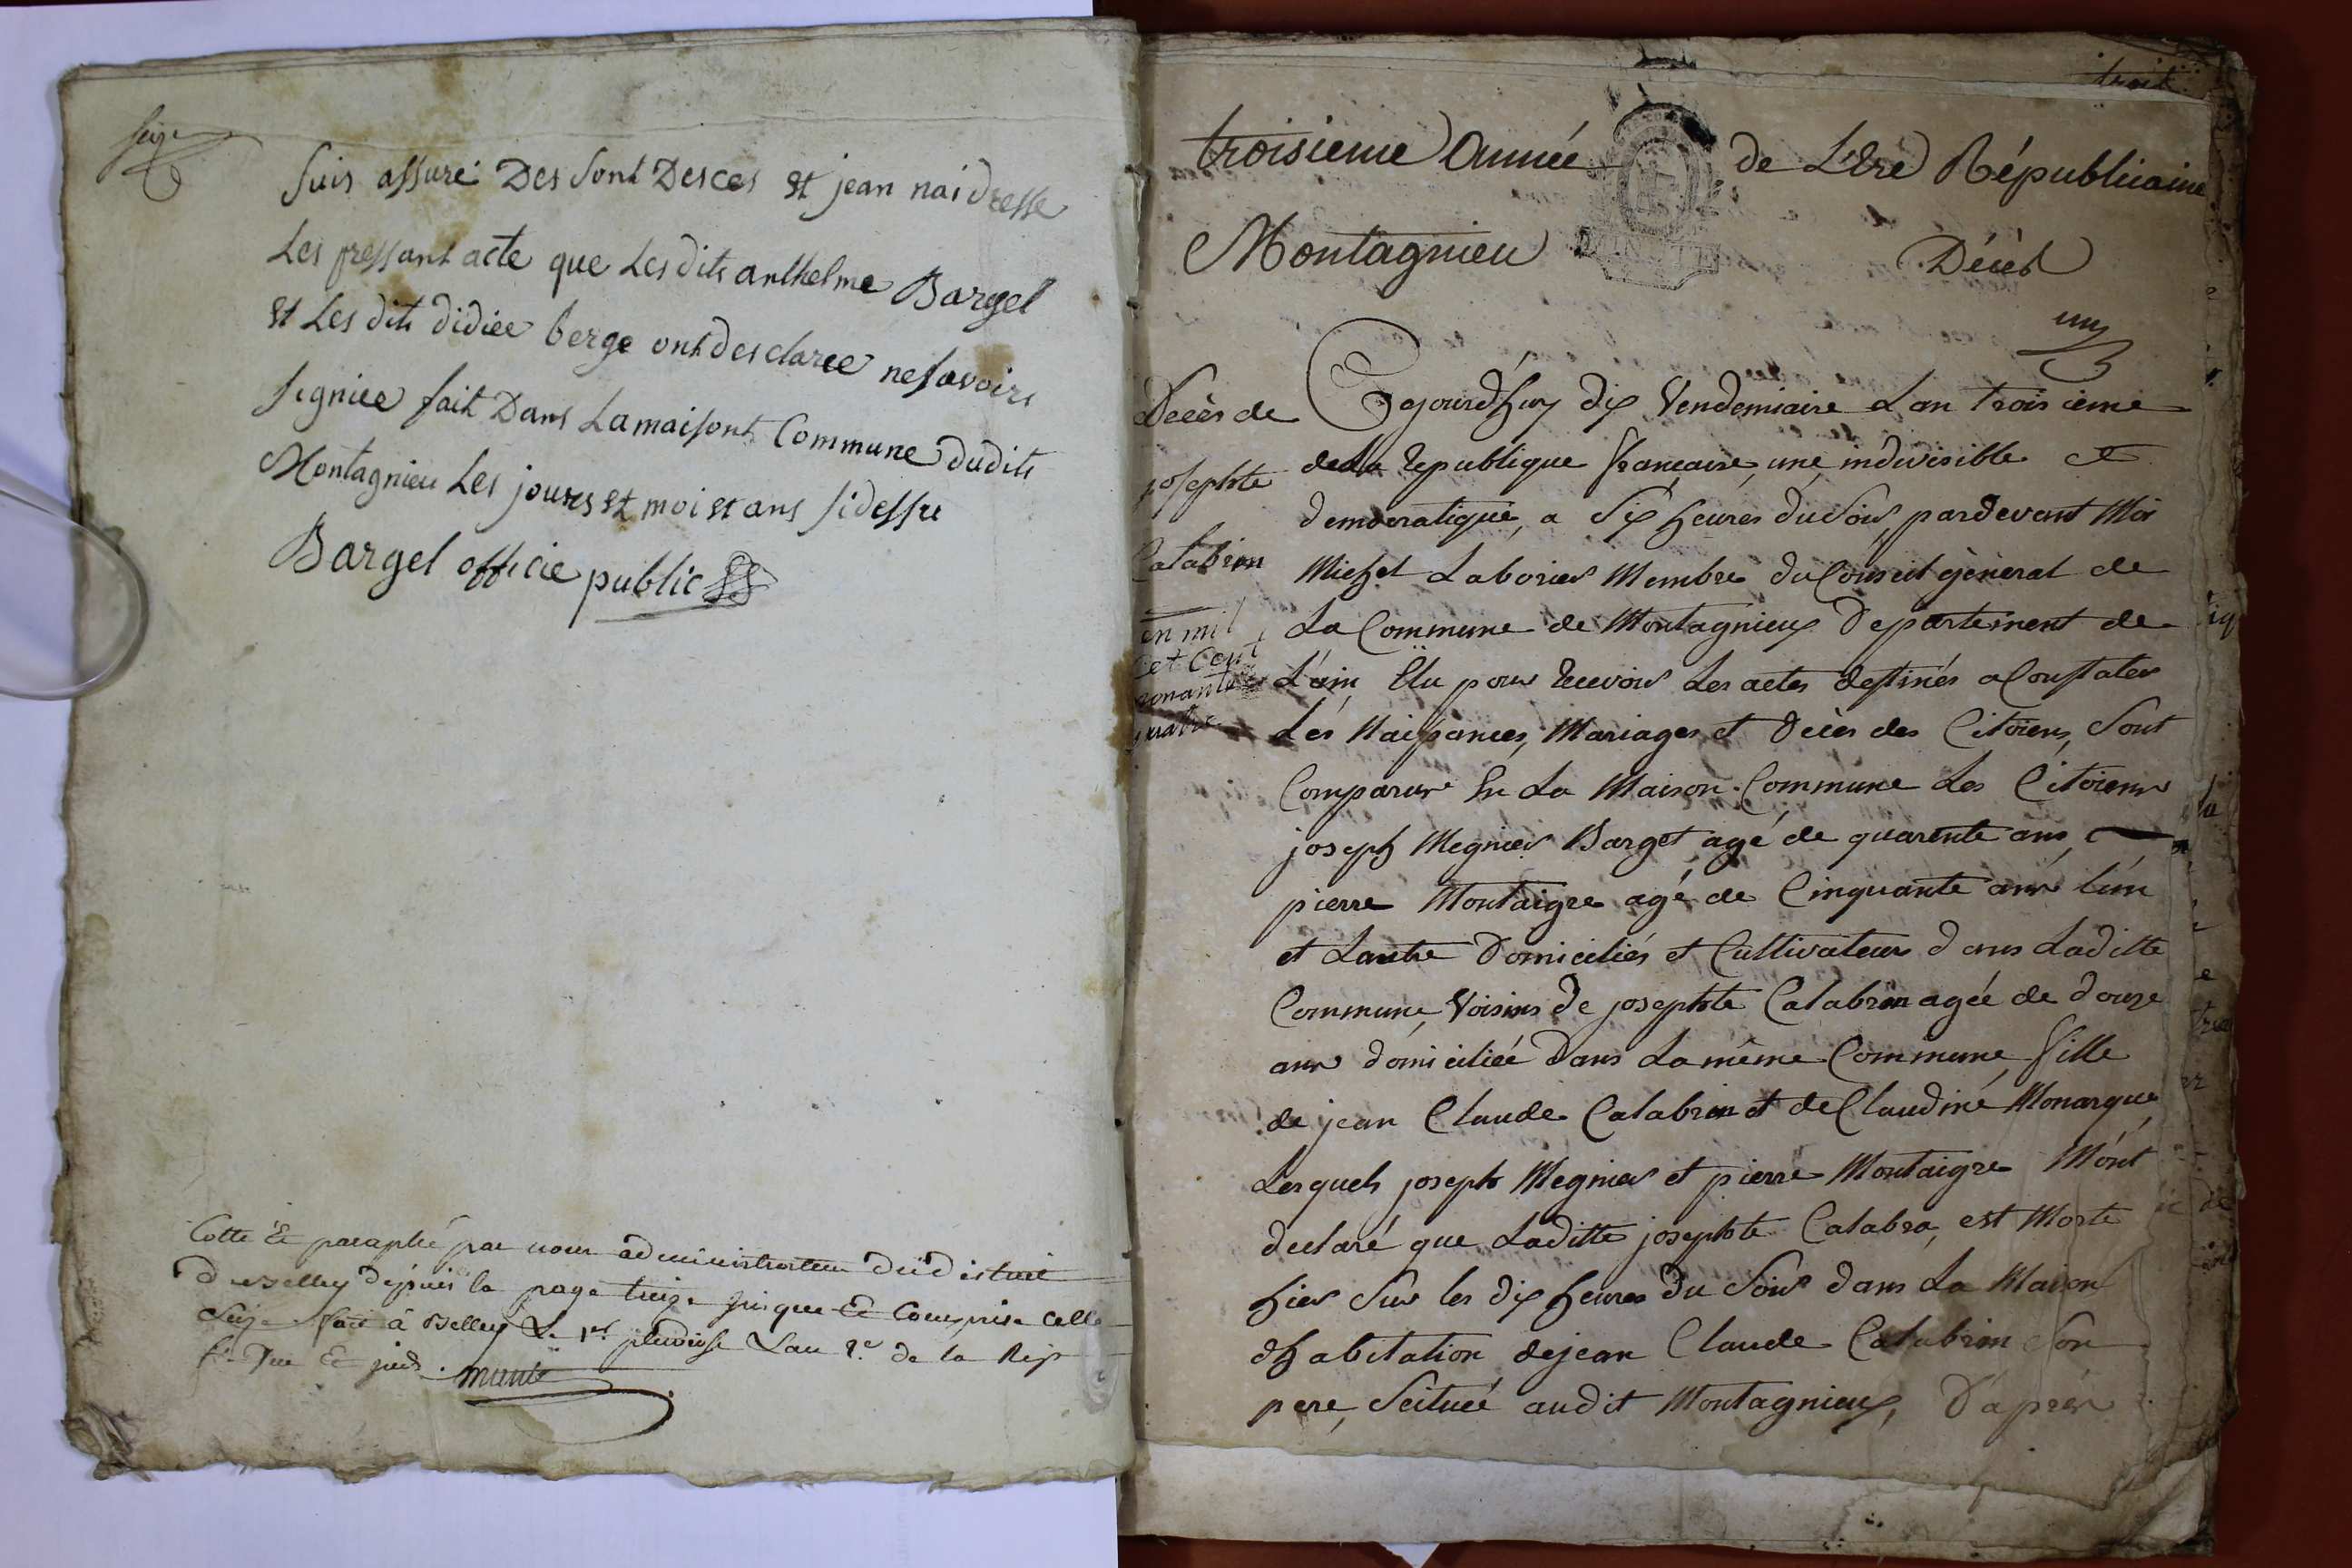 seize
suis assuré Des sont Desces et jean nai dresse
Les pressant acte que Lesdits anthelme Bargel
et Les dits didiee berge ont desclaree ne savoire
signiee fait Dans La maisont Commune dudits
Montagnieu Les jours et moi et ans sidessu
Bargel officie public
Cotté Et paraphé par nous administrateur du district
de Belley depuis la page treize jusque Et Comprise celle
seize fait à Belley Le 1er pluviose Lan 2e de la Rep
fse Une Et jndi.
troisieme Année de L'Ere Républicaine
Montagnieu Décès
MINUTE
un
Decès de
josephte
Calabrin
en mil
set Cent
nonante
quatre
Cejourd'huy dix Vendemiaire Lan troisième
de la republique française, une, indivisible et
democratique, a Six heures du Soir, pardevant Moi
Michel Laborier Membre du Conseil gèneral de
La Commune de Montagnieux Departement de
L'ain Elu pour recevoir Les actes destinés a Constater
Les Naissances, Mariages et Decès des Citoiens, Sont
Comparus En La Maison Commune Les Citoiens
joseph Megnier Barget agé de quarente ans, et
pierre Montaigre agé de Cinquante ans l'un
et Lautre Domiciliés et Cultivateurs dans Laditte
Commune, Voisins de josephte Calabrin agée de douze
ans domiciliée dans La même Commune, fille
de jean Claude Calabrin et de Claudine Monarque,
Lesquels joseph Megnier et pierre Montaigre M'ont
declaré que Laditte josephte Calabra, est Morte
hier Sur les dix heures du Soir dans La Maison
d'habitation de jean Claude Calabrin Son
pere, Seituée audit Montagnieux, D'après